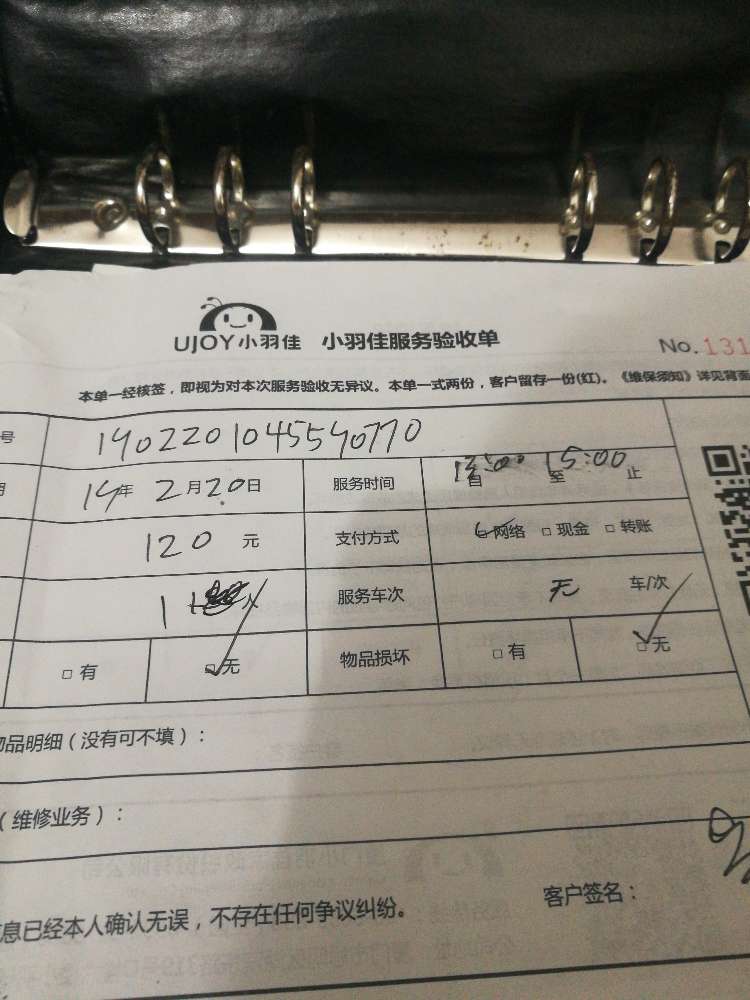 UJOY小羽佳 小羽佳服务验收单
No.131
本单一经核签，即视为对本次服务验收无异议。本单一式两份，客户留存一份(红)。《维保须知》详见背面
号 1902201045540770
19年 2月20日 服务时间 自 至15:00 止
120 元 支付方式 □网络 □现金 □转账
1 人 服务车次 无 车/次
□有 □无 物品损坏 □有 □无
物品明细（没有可不填）：
（维修业务）：
客户签名：
信息已经本人确认无误，不存在任何争议纠纷。